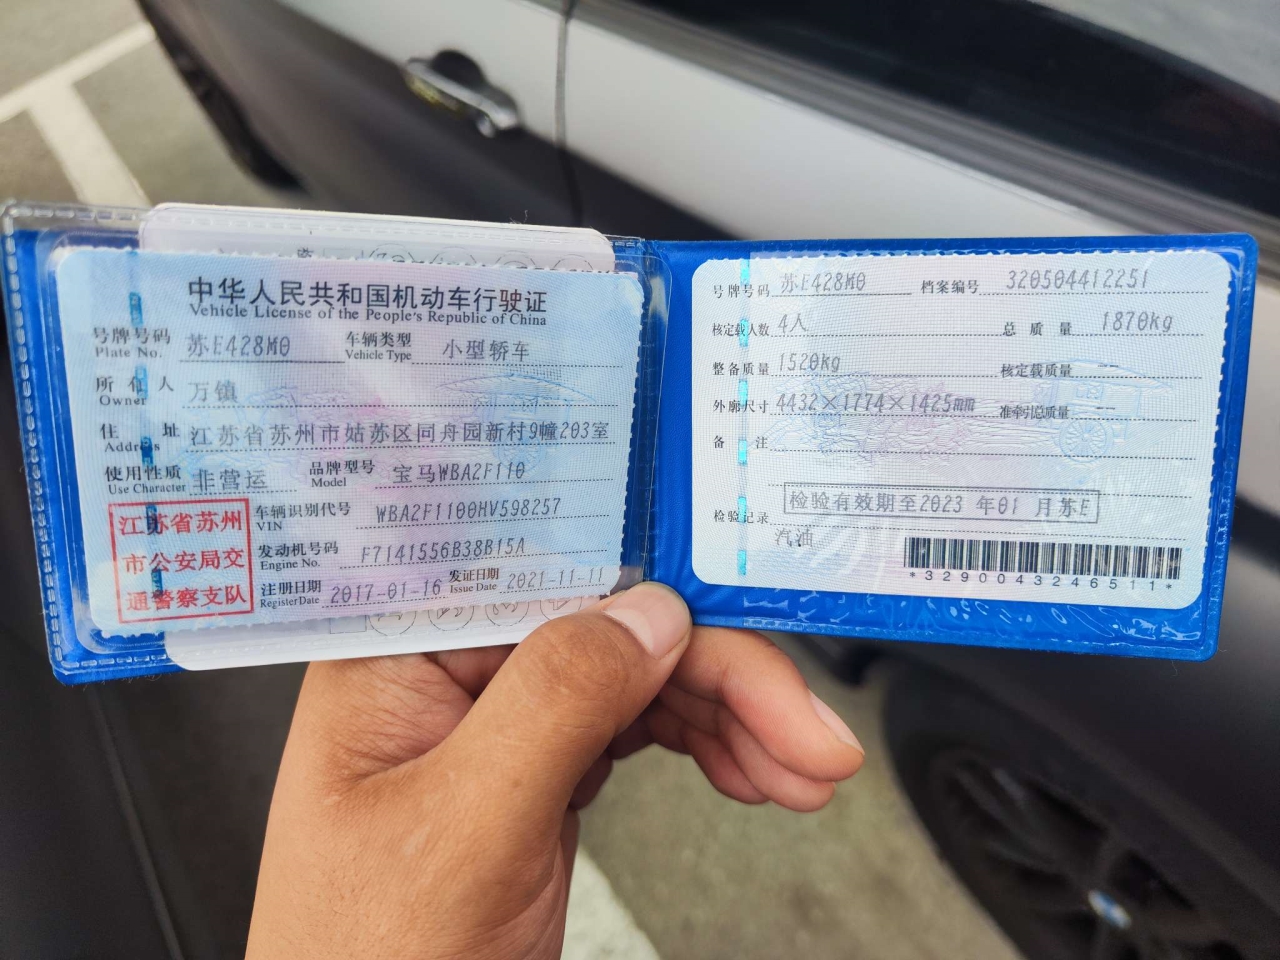 中华人民共和国机动车行驶证
Vehicle License of the People's Republic of China
号牌号码 苏E428M0 车辆类型 小型轿车
Plate No. Vehicle Type
所有人 万镇
Owner
住址 江苏省苏州市姑苏区同舟园新村9幢203室
Address
使用性质 非营运 品牌型号 宝马WBA2F110
Use Character Model
江苏省苏州
市公安局交
通警察支队
车辆识别代号 WBA2F1100HV598257
VIN
发动机号码 F7141556B38B15A
Engine No.
注册日期 2017-01-16 发证日期 2021-11-11
Register Date Issue Date
号牌号码 苏E428M0 档案编号 320504412251
核定载人数 4人 总质量 1870kg
整备质量 1520kg 核定载质量 --
外廓尺寸 4432×1774×1425mm 准牵引总质量 --
备注
检验有效期至2023年01月苏E
检验记录
汽油
*3290043246511*